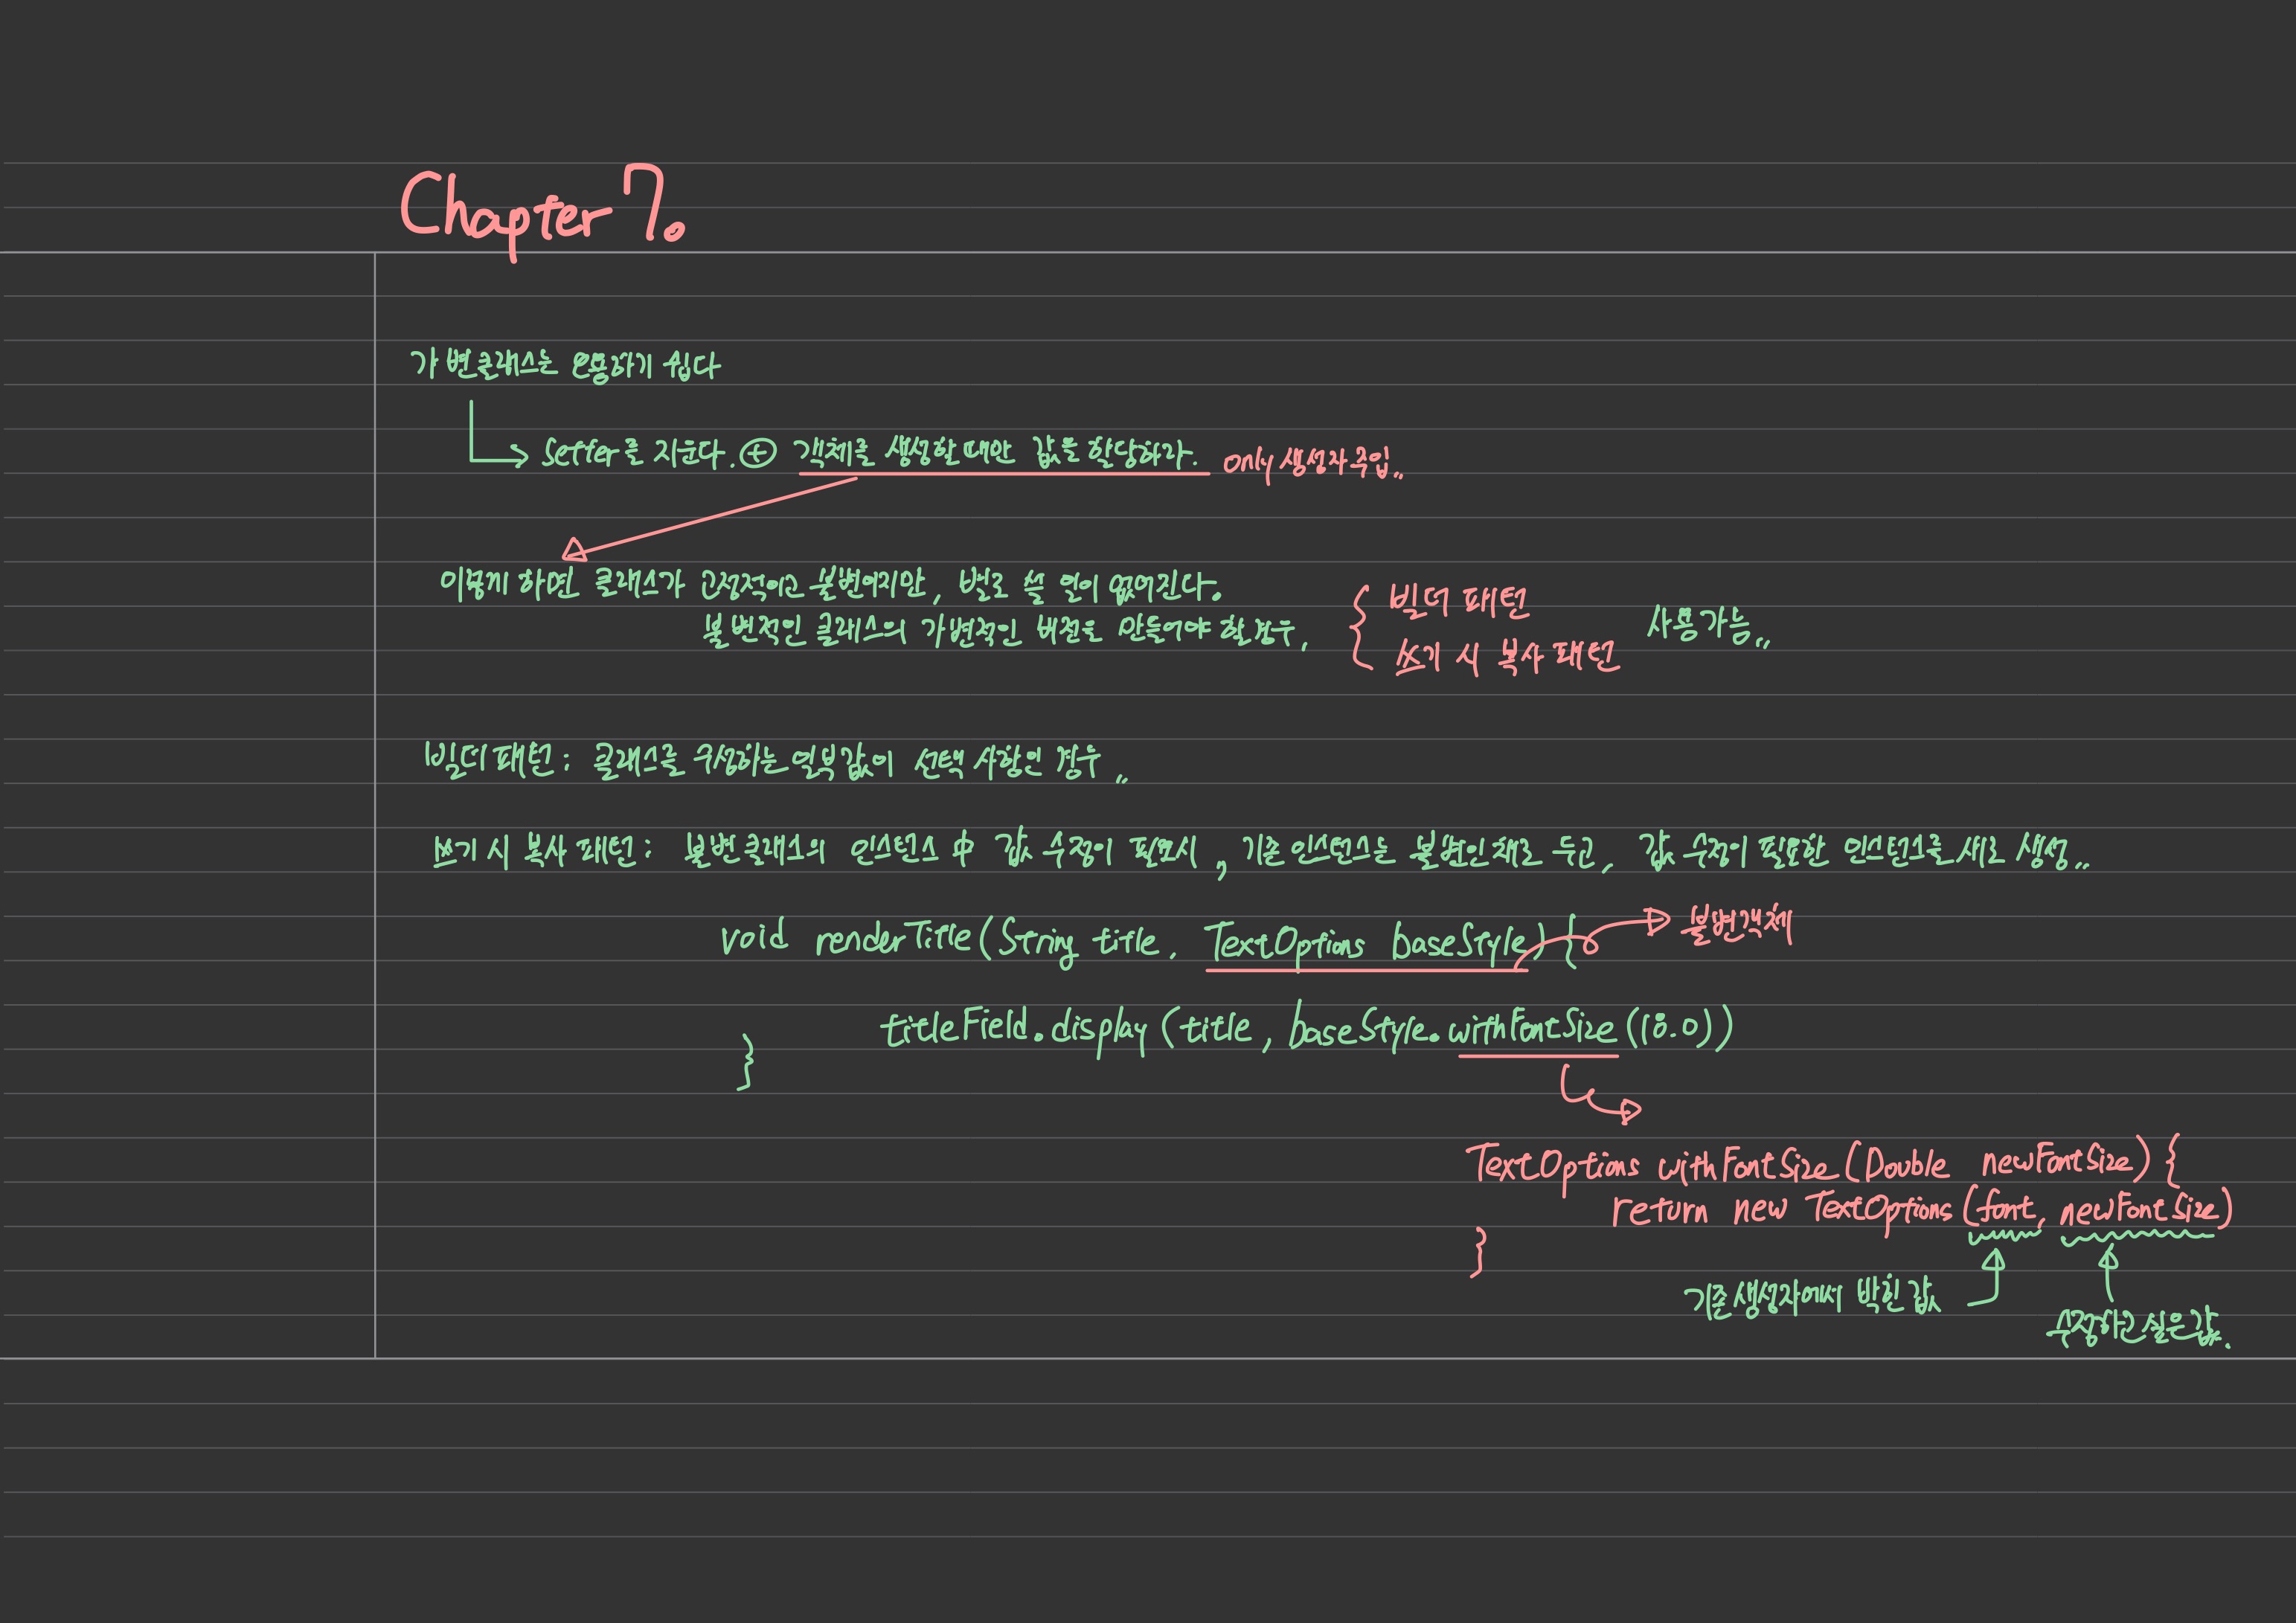 Chapter 7.
가변클래스는 오용하기 쉽다
Setter를 지운다. ⊕ 객체를 생성할 때만 값을 할당하라. only 생성자 주입..
이렇게 하면 클래스가 안정적이고 불변이지만, 별로 쓸 일이 없어진다.
불변적인 클래스의 가변적인 버전을 만들어야 할 경우,
{ 빌더 패턴
쓰기 시 복사 패턴
사용가능..
빌더패턴 : 클래스를 구성하는 일부 값이 선택 사항인 경우..
쓰기 시 복사 패턴 : 불변 클래스의 인스턴스 中 값 수정이 필요시, 기존 인스턴스는 불변인 채로 두고, 값 수정이 필요한 인스턴스를 새로 생성..
void renderTitle(String title, TextOptions baseStyle) {
불변객체
titleField.display(title, baseStyle.withFontSize(18.0))
}
TextOptions withFontSize(Double newFontSize) {
return new TextOptions(font, newFontSize)
}
기존 생성자에서 받힌 값
수정하고 싶은 값.